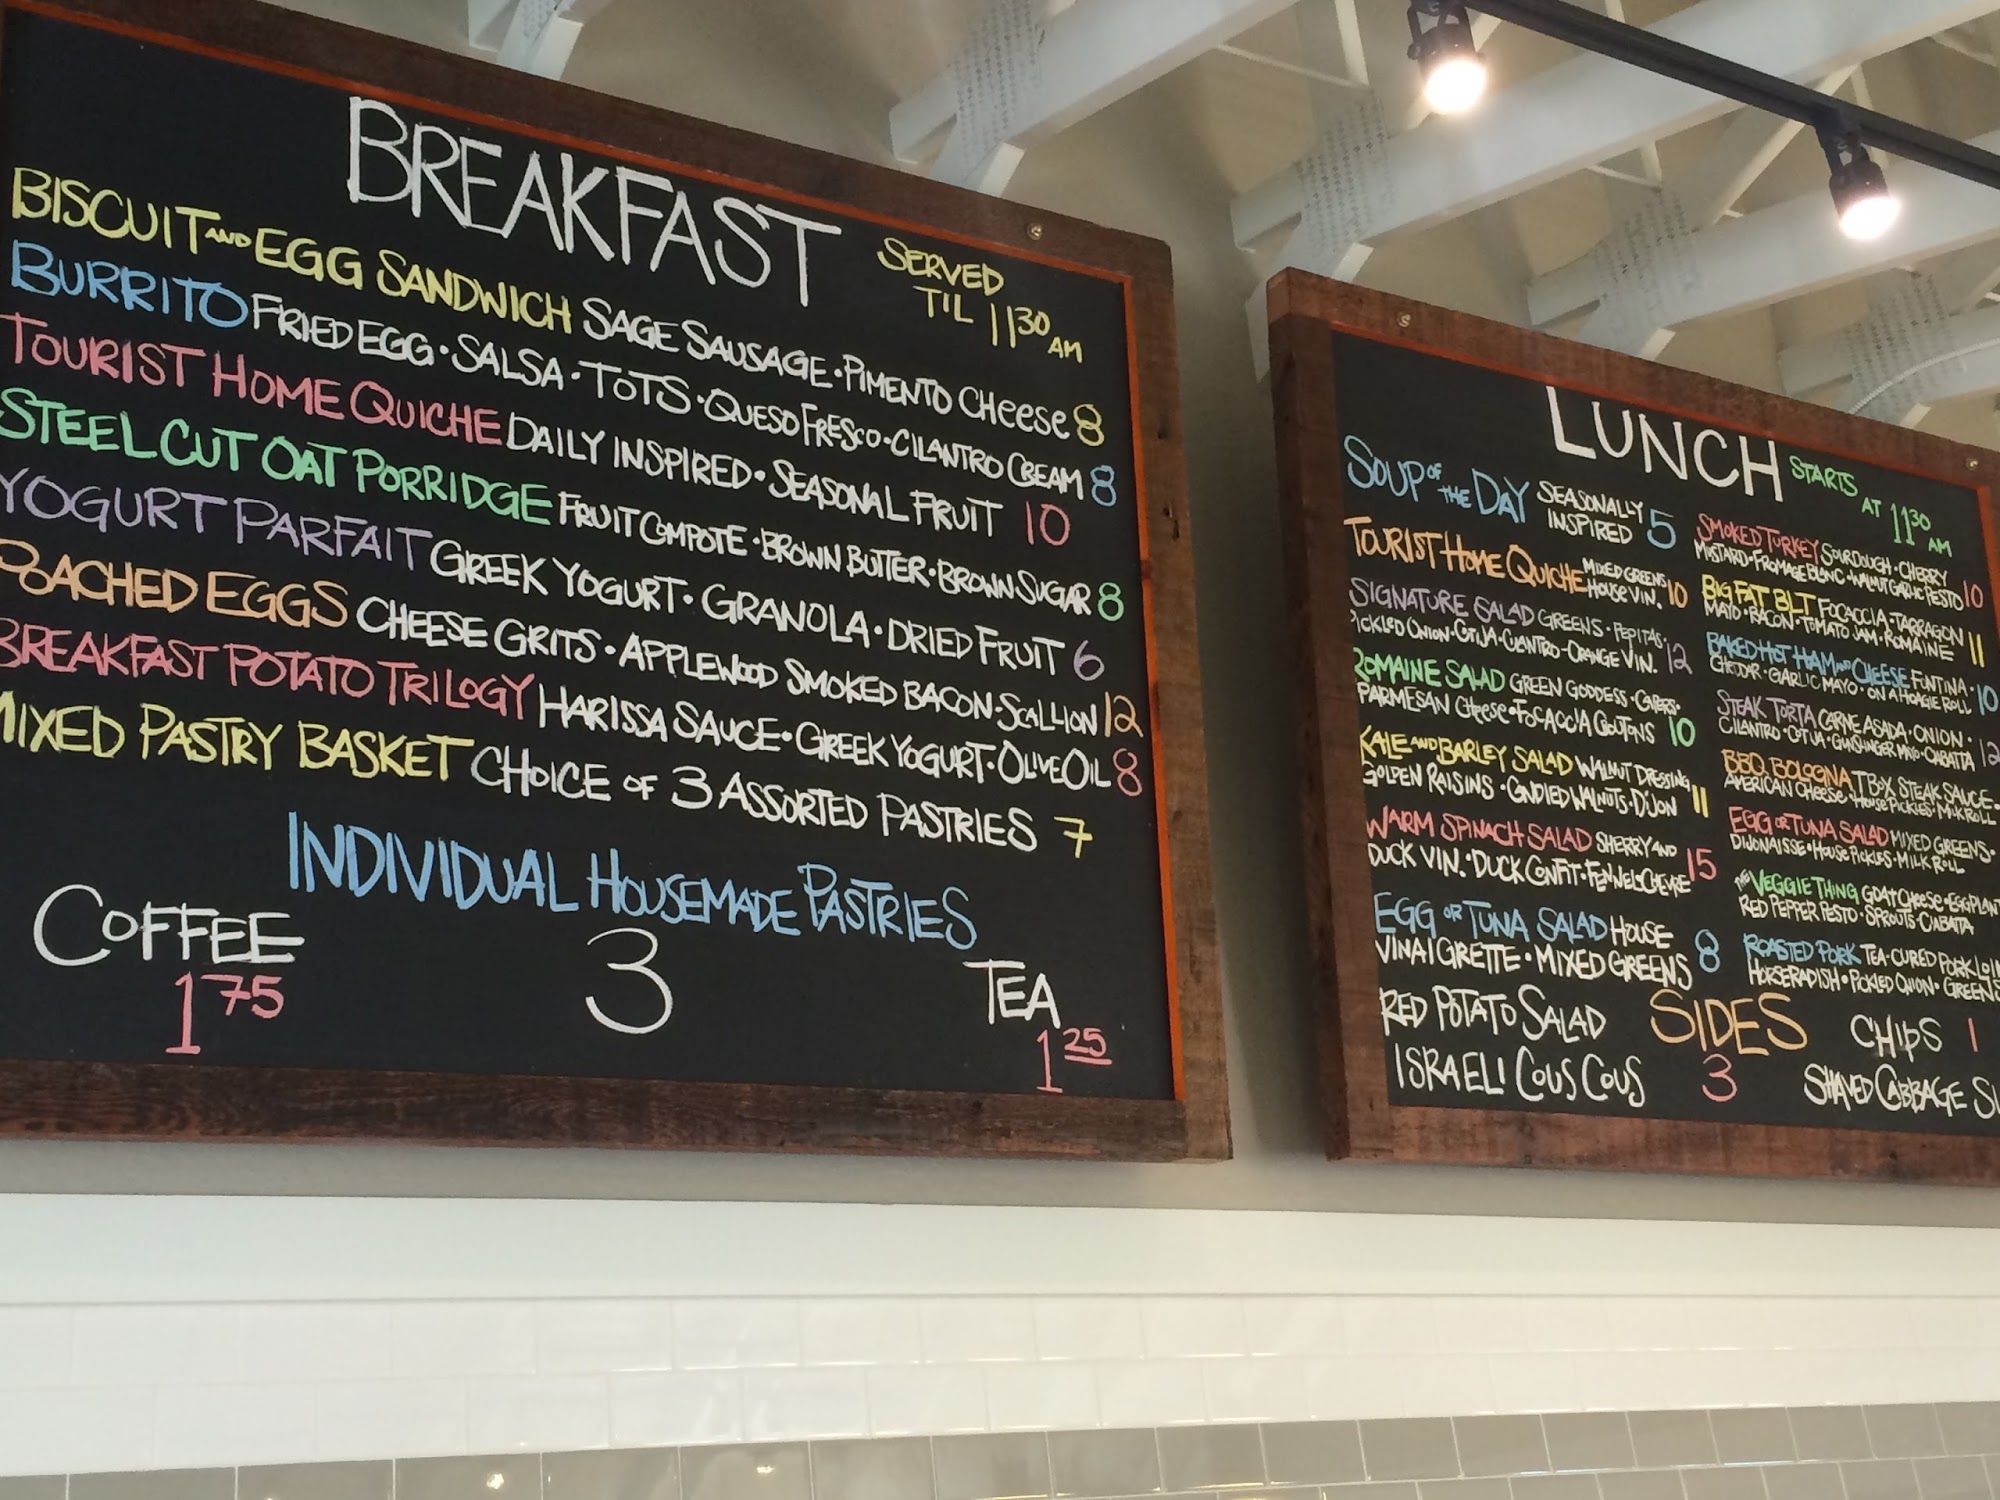 BREAKFAST
SERVED
TIL 11 30 AM
BISCUIT AND EGG SANDWICH SAGE SAUSAGE · PIMENTO CHEESE 8
BURRITO FRIED EGG · SALSA · TOTS · QUESO FRESCO · CILANTRO CREAM 8
TOURIST HOME QUICHE DAILY INSPIRED · SEASONAL FRUIT 10
STEEL CUT OAT PORRIDGE FRUIT COMPOTE · BROWN BUTTER · BROWN SUGAR 8
YOGURT PARFAIT GREEK YOGURT · GRANOLA · DRIED FRUIT 6
POACHED EGGS CHEESE GRITS · APPLEWOOD SMOKED BACON · SCALLION 12
BREAKFAST POTATO TRILOGY HARISSA SAUCE · GREEK YOGURT · OLIVE OIL 8
MIXED PASTRY BASKET CHOICE OF 3 ASSORTED PASTRIES 7
INDIVIDUAL HOUSEMADE PASTRIES
3
COFFEE
1 75
TEA
1 25
LUNCH
STARTS
AT 11 30 AM
SOUP OF THE DAY SEASONALLY
INSPIRED 5
TOURIST HOME QUICHE MIXED GREENS
HOUSE VIN. 10
SIGNATURE SALAD GREENS · PEPITAS ·
PICKLED ONION · COTIJA · CILANTRO · ORANGE VIN. 12
ROMAINE SALAD GREEN GODDESS · CAPERS ·
PARMESAN CHEESE · FOCACCIA CROUTONS 10
KALE AND BARLEY SALAD WALNUT DRESSING
GOLDEN RAISINS · CANDIED WALNUTS · DIJON 11
WARM SPINACH SALAD SHERRY AND
DUCK VIN. · DUCK CONFIT · FENNEL · CHEVRE 15
EGG OR TUNA SALAD HOUSE
VINAIGRETTE · MIXED GREENS 8
SMOKED TURKEY SOURDOUGH · CHERRY
MUSTARD · FROMAGE BLANC · WALNUT GARLIC PESTO 10
BIG FAT BLT FOCACCIA · TARRAGON
MAYO · BACON · TOMATO JAM · ROMAINE 11
BAKED HOT HAM AND CHEESE FONTINA ·
CHEDDAR · GARLIC MAYO · ON A HOAGIE ROLL 10
STEAK TORTA CARNE ASADA · ONION ·
CILANTRO · COTIJA · GUNSLINGER MAYO · CIABATTA 12
BBQ BOLOGNA TBOX STEAK SAUCE ·
AMERICAN CHEESE · HOUSE PICKLES · MILK ROLL
EGG OR TUNA SALAD MIXED GREENS ·
DIJONAISSE · HOUSE PICKLES · MILK ROLL
THE VEGGIE THING GOAT CHEESE · EGGPLANT
RED PEPPER PESTO · SPROUTS · CIABATTA
ROASTED PORK TEA-CURED PORK
HORSERADISH · PICKLED ONION · GREENS
SIDES
3
RED POTATO SALAD
ISRAELI COUS COUS
CHIPS 1
SHAVED CABBAGE